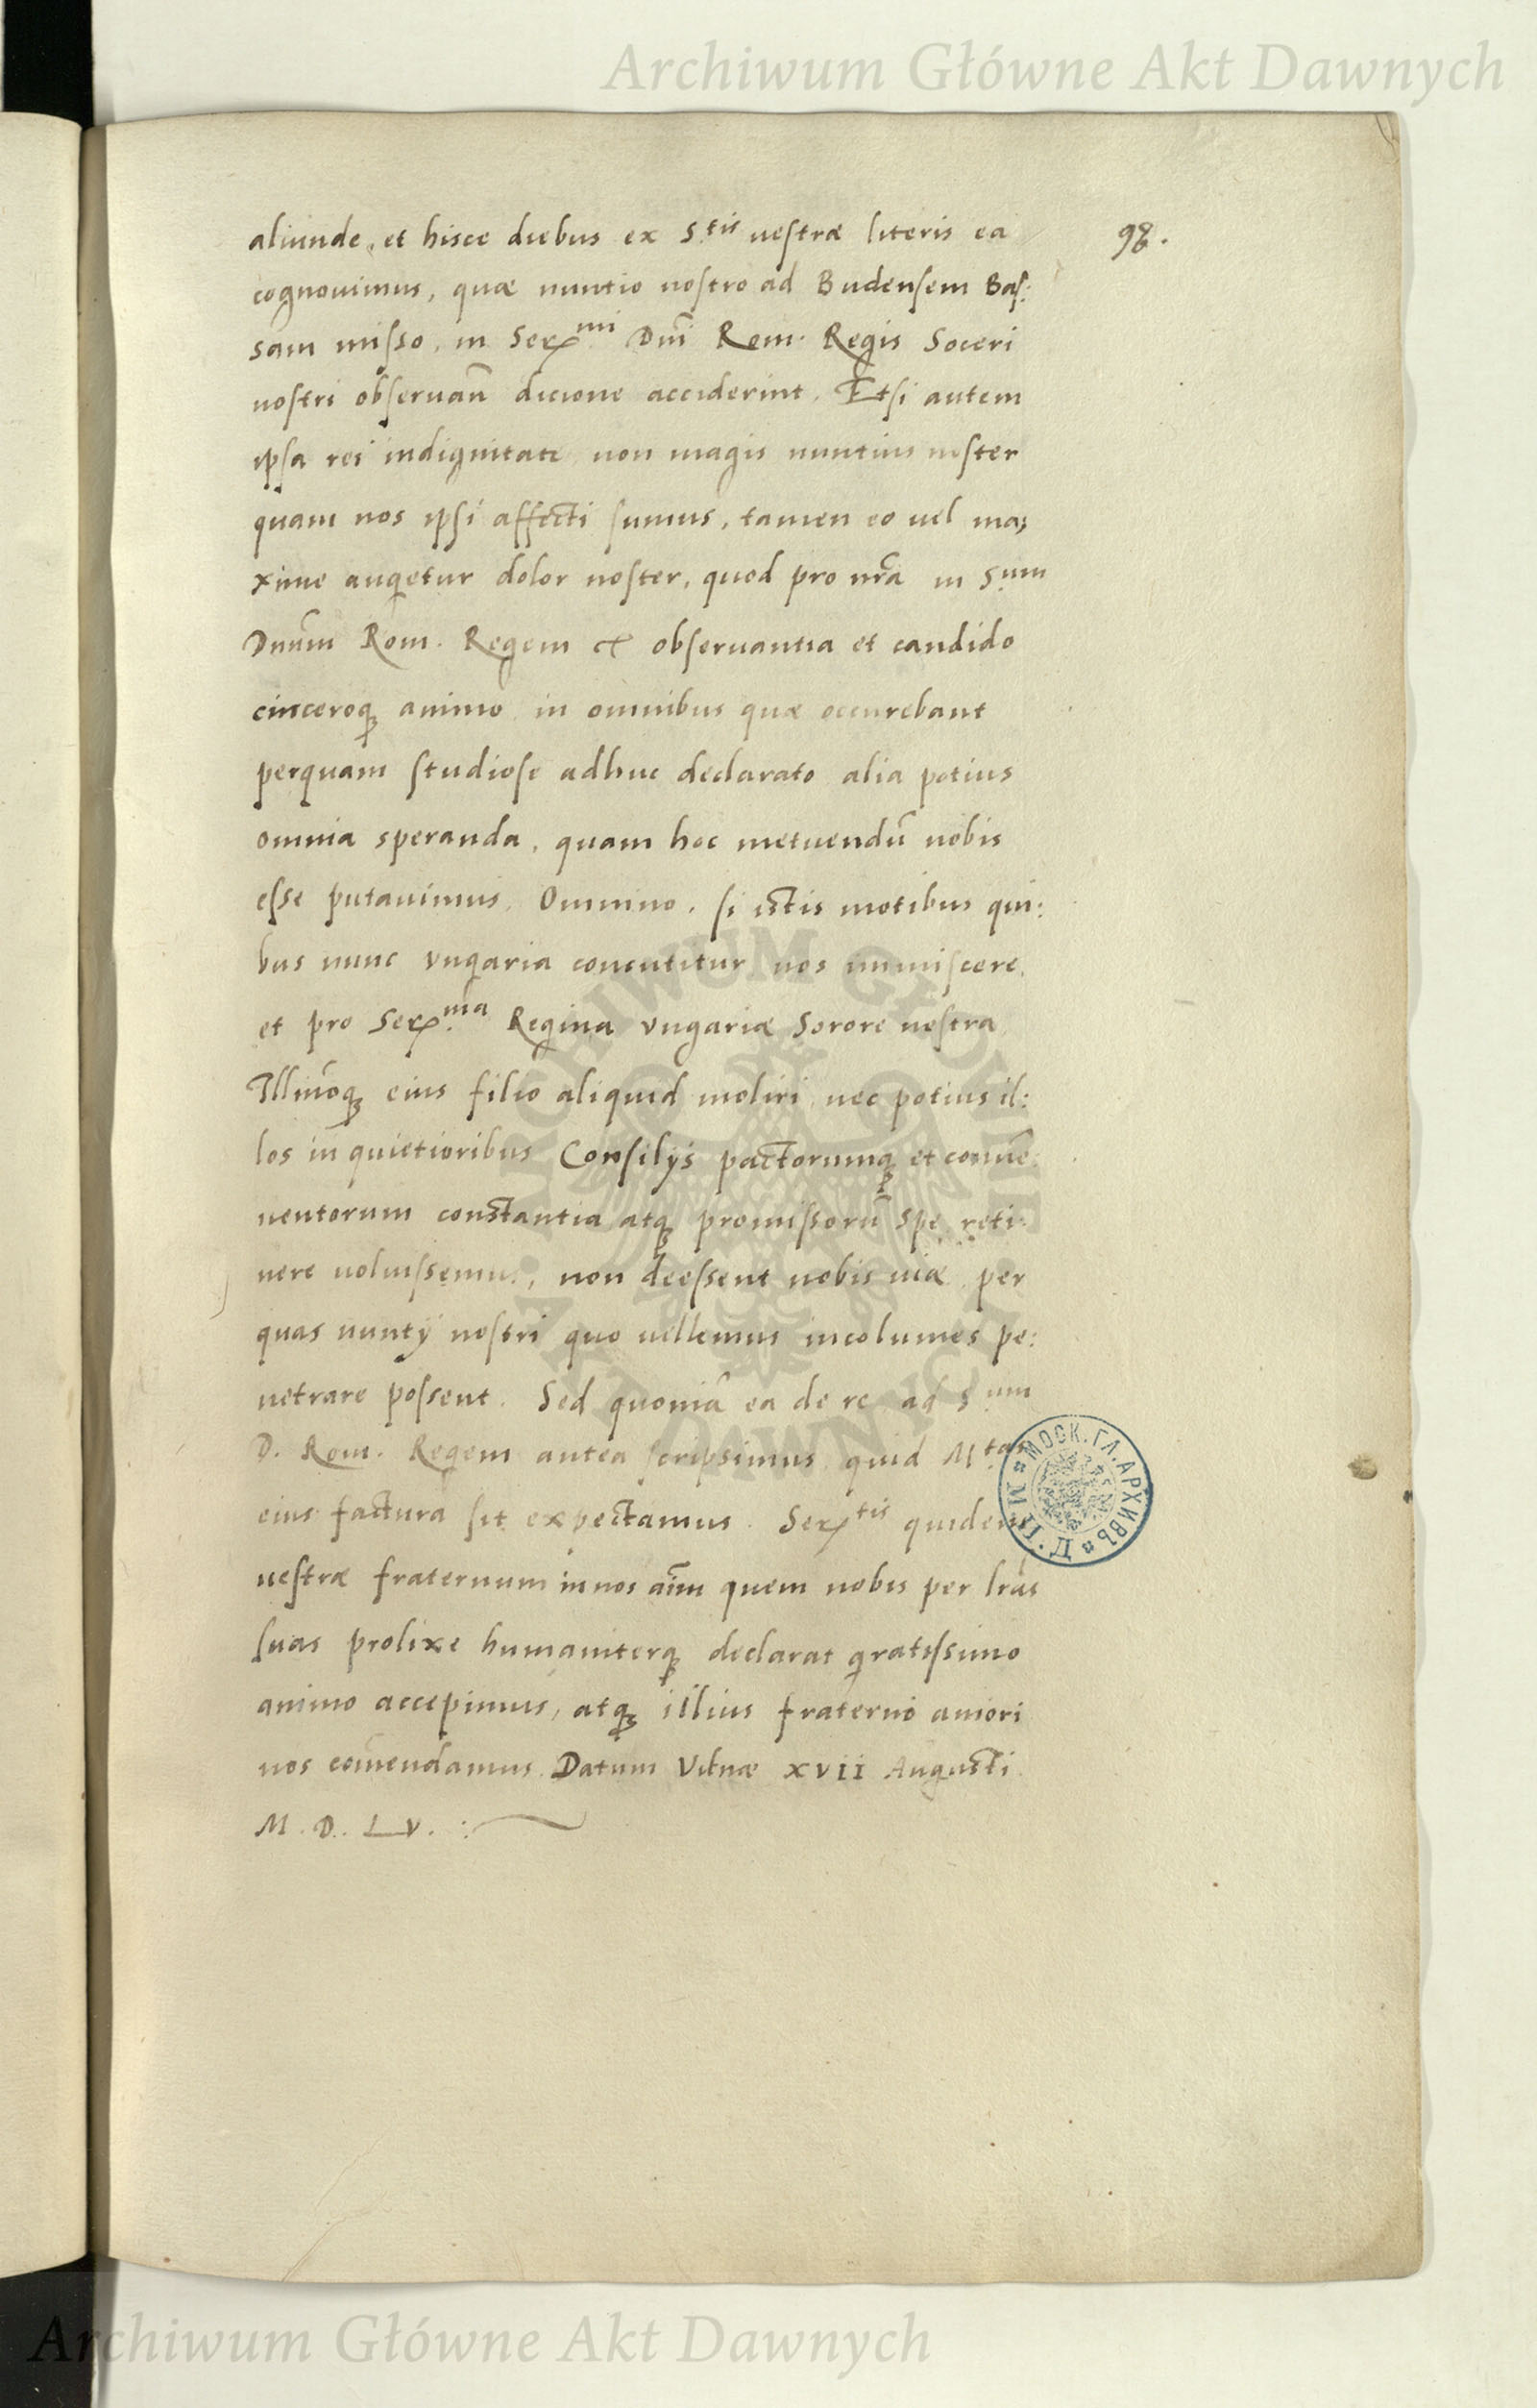 Archiwum Główne Akt Dawnych
98.
aliunde, et hisce diebus ex S.tis uestræ literis ea
cognouimus, quæ nuntio nostro ad Budensem Bas:
sam misso, in Ser.mi Dnī Rom. Regis Soceri
nostri obseruan̄ dicione acciderint. Etsi autem
ipsa rei indignitate non magis nuntius noster
quam nos ipsi affecti sumus, tamen eo uel ma:
xime augetur dolor noster, quod pro nr̄a in S.um
Dnūm Rom. Regem et obseruantia et candido
cinceroq; animo in omnibus quæ occurebant
perquam studiose adhuc declarato alia potius
omnia speranda, quam hoc metuendū nobis
esse putauimus. Omnino, si istis motibus qui:
bus nunc Vngaria concutitur nos immiscere,
et pro Ser.ma Regina Vngariæ Sorore nestra
Illm̄oq; eius filio aliquid moliri nec potius il:
los in quietioribus Consilijs pactorumq; et conue:
nentorum constantia atq; promissorū spe reti:
nere uoluissemus, non deessent nobis uiæ per
quas nuntij nostri quo uellemus incolumes pe:
netrare possent. Sed quoniā ea de re ad S.um
D. Rom. Regem antea scripsimus quid M.tas
eius factura sit expectamus. Ser.tis quidem
uestræ fraternum in nos aīm quem nobis per lr̄as
suas prolixe humaniterq; declarat gratissimo
animo accepimus, atq; illius fraterno amori
nos com̄endamus. Datum Vilnæ XVII Augusti
M. D. LV.
МОСК. ГЛ. АРХИВЪ
М. И. Д.
ARCHIWUM GŁÓWNE
AKT DAWNYCH
Archiwum Główne Akt Dawnych